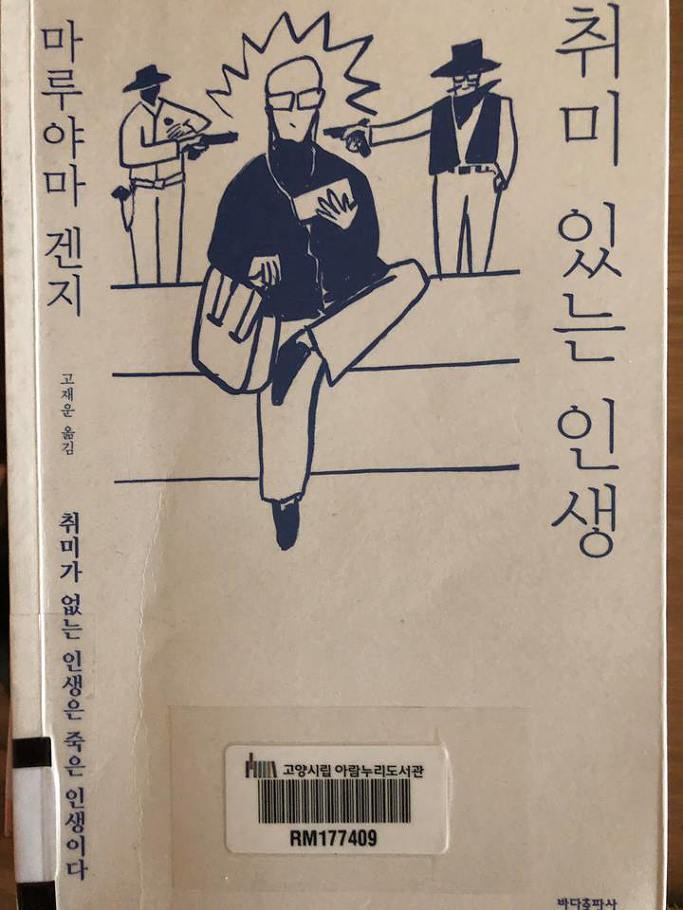 취미 있는 인생
마루야마 겐지
고재운 옮김
취미가 없는 인생은 죽은 인생이다
고양시립 아람누리도서관
RM177409
바다출판사